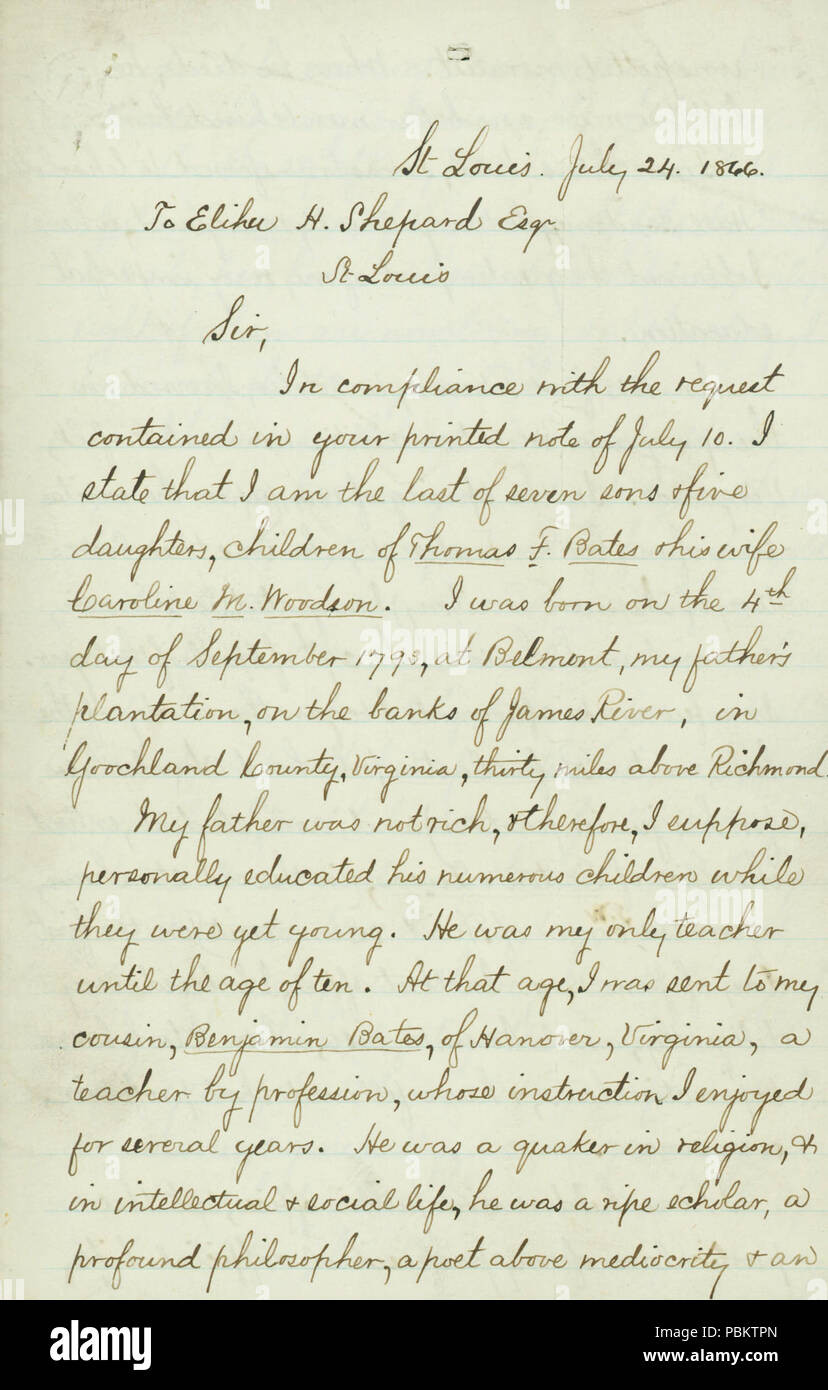 St Louis. July 24. 1866.
To Elihu H. Shepard Esqr
St Louis
Sir,
In compliance with the request
contained in your printed note of July 10. I
state that I am the last of seven sons & five
daughters, children of Thomas F. Bates & his wife
Caroline M. Woodson. I was born on the 4th
day of September 1793, at Belmont, my father's
plantation, on the banks of James River, in
Goochland County, Virginia, thirty miles above Richmond.
My father was not rich, & therefore, I suppose,
personally educated his numerous children while
they were yet young. He was my only teacher
until the age of ten. At that age, I was sent to my
cousin, Benjamin Bates, of Hanover, Virginia, a
teacher by profession, whose instruction I enjoyed
for several years. He was a quaker in religion, &
in intellectual & social life, he was a ripe scholar, a
profound philosopher, a poet above mediocrity & an
alamy
a
alamy
Image ID: PBKTPN
www.alamy.com